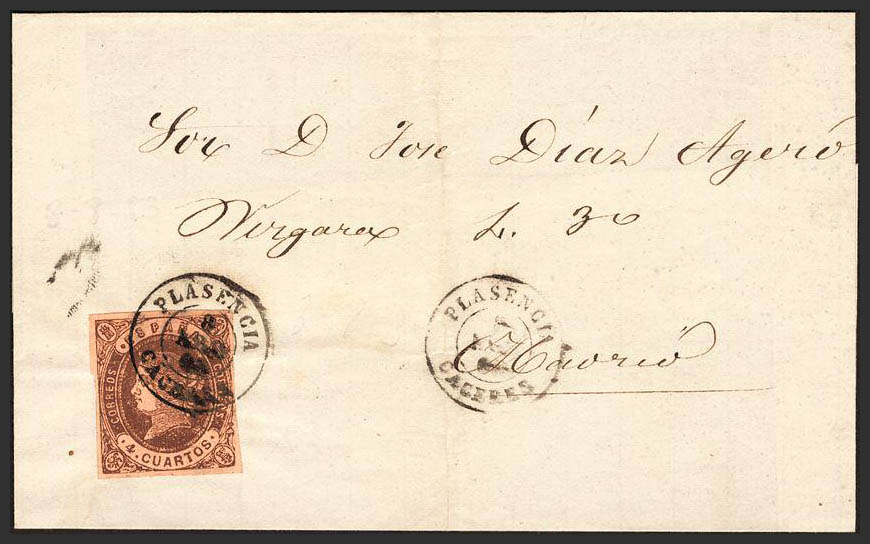 Sor D Jose Díaz Agero
Vergara L. 3º
Madrid
PLASENCIA
8
CACERES
PLASENCIA
7
CACERES
ESPAÑA
CORREOS
4 CUARTOS